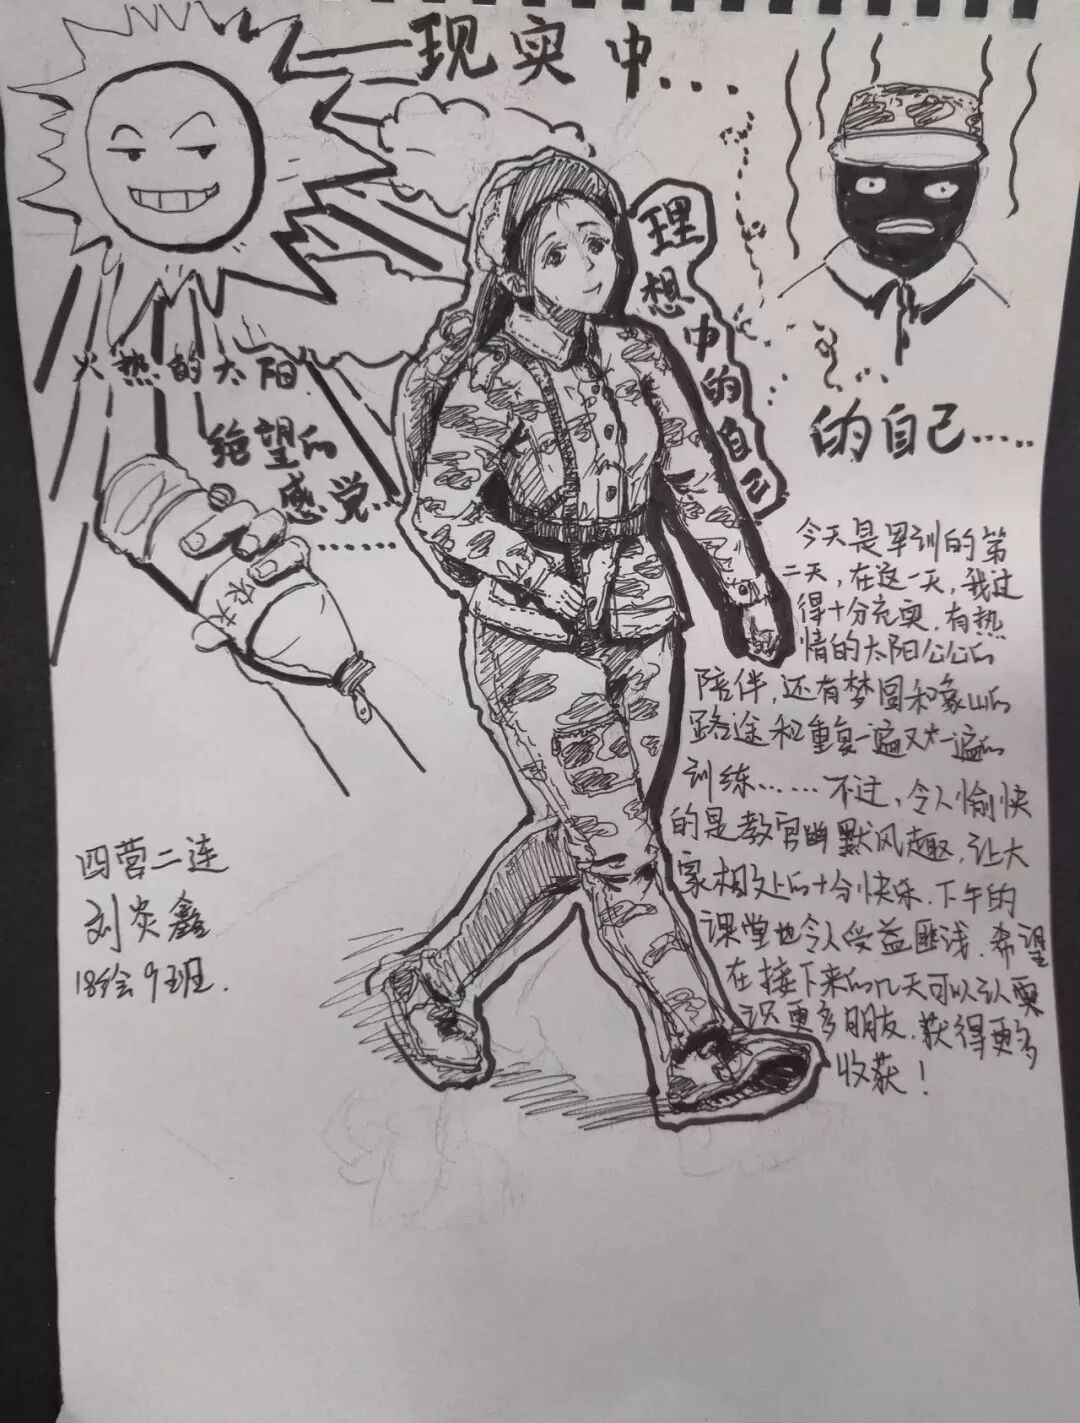 现实中...
理想中的自己
的自己.....
火热的太阳
绝望的
感觉...
......
农夫
今天是军训的第
二天，在这一天，我过
得十分充实，有热
情的太阳公公的
陪伴，还有梦圆和象山的
路途和重复一遍又一遍的
训练……不过，令人愉快
的是教官幽默风趣，让大
家相处的十分快乐．下午的
课堂也令人受益匪浅．希望
在接下来的几天可以认
识更多朋友．获得更多
收获！
四营二连
刘炎鑫
18绘9班．